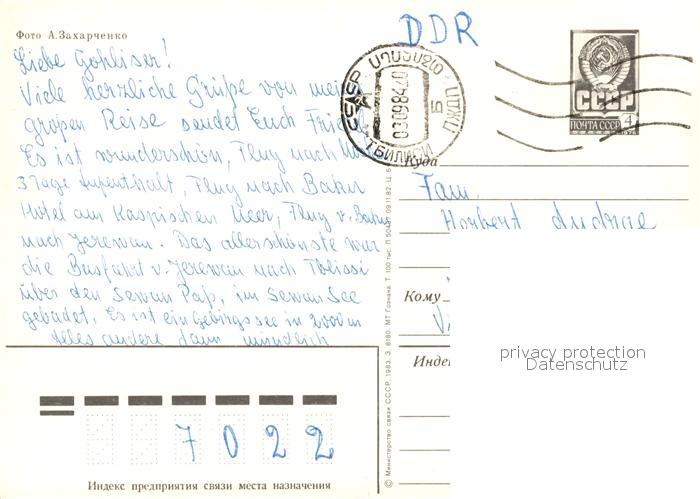 Фото А.Захарченко
DDR
Liebe Gohliser!
Viele herzliche Grüße von meiner
großen Reise sendet Euch
Es ist wunderschön, Flug nach
3 Tage Aufenthalt, Flug nach Baku
Hotel am Kaspischen Meer, Flug v. Baku
nach Jerewan. Das allerschönste war
die Busfahrt v. Jerewan nach Tbilissi
über den Sewan Paß, im Sewan See
gebadet. Es ist ein Gebirgssee in 2000m
Alles andere dann mündlich
СССР
ТБИЛИСИ
СССР
ПОЧТА СССР 4
Куда
Fam.
Herbert
Кому
Индекс
7022
Индекс предприятия связи места назначения
© Министерство связи СССР, 1983. З. 8180. МТ Гознака. Т. 100 тыс.
privacy protection
Datenschutz